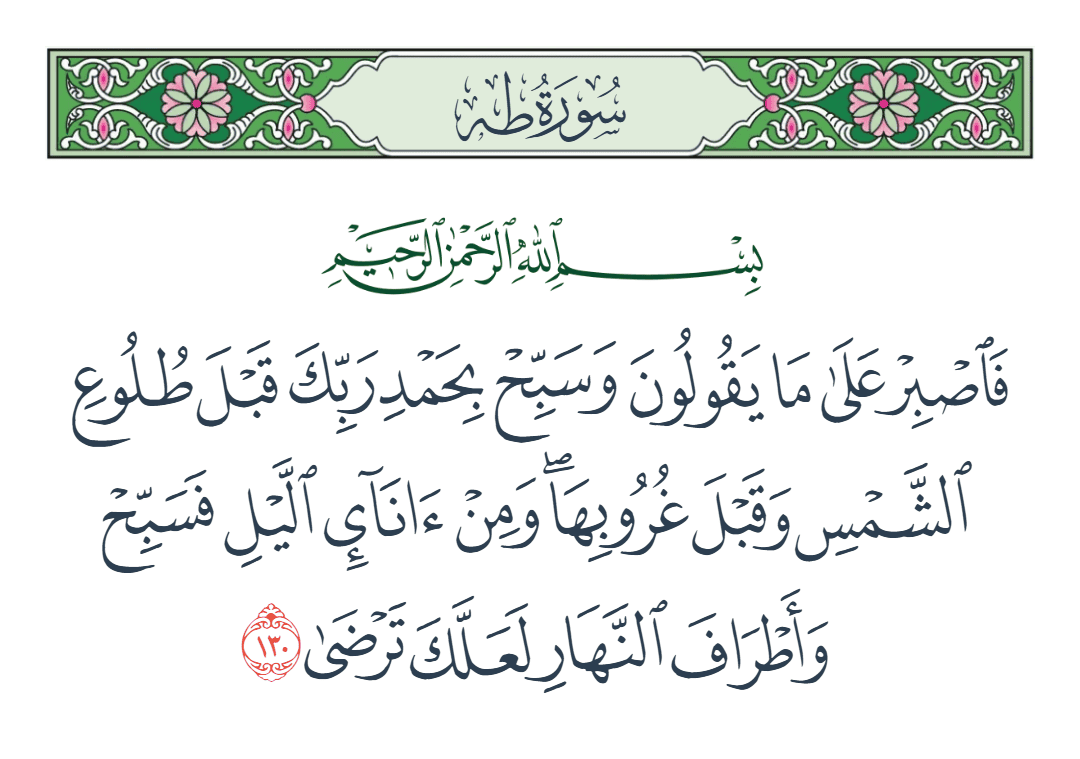 سُورَةُ طه
بِسْمِ ٱللَّهِ ٱلرَّحْمَٰنِ ٱلرَّحِيمِ
فَٱصْبِرْ عَلَىٰ مَا يَقُولُونَ وَسَبِّحْ بِحَمْدِ رَبِّكَ قَبْلَ طُلُوعِ
ٱلشَّمْسِ وَقَبْلَ غُرُوبِهَاۖ وَمِنْ ءَانَآئِ ٱلَّيْلِ فَسَبِّحْ
وَأَطْرَافَ ٱلنَّهَارِ لَعَلَّكَ تَرْضَىٰ ١٣٠